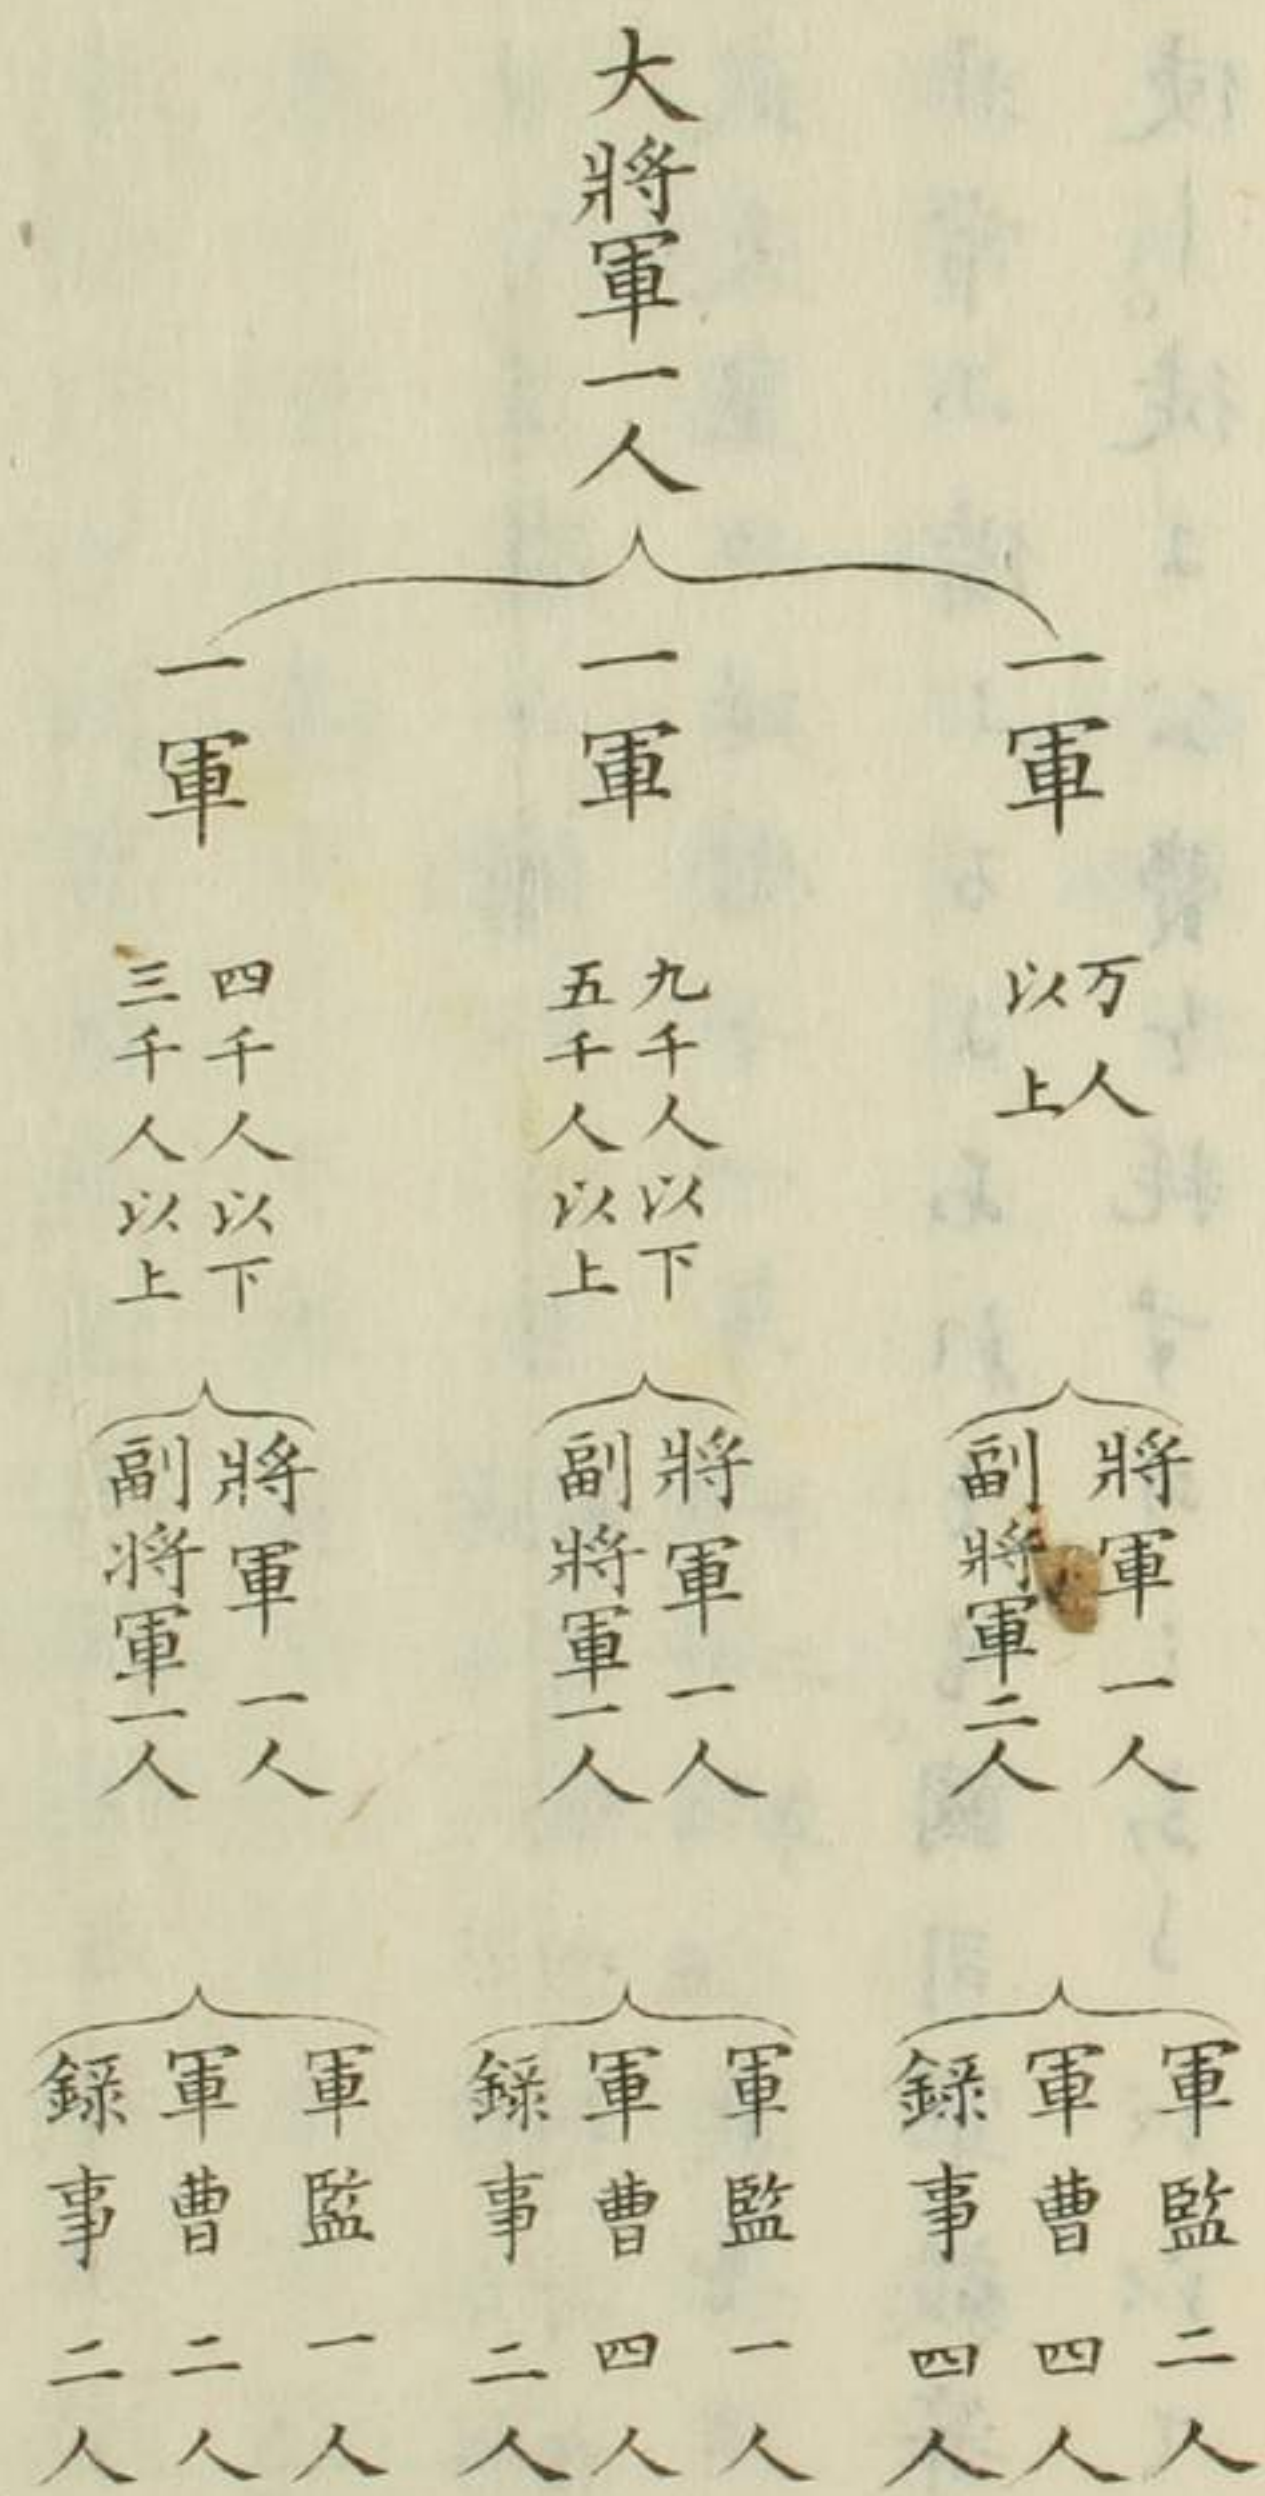 大將軍一人
一軍
万人
以上
將軍一人
副將軍二人
軍監二人
軍曹四人
錄事四人
一軍
九千人以下
五千人以上
將軍一人
副將軍一人
軍監一人
軍曹四人
錄事二人
一軍
四千人以下
三千人以上
將軍一人
副将軍一人
軍監一人
軍曹二人
錄事二人